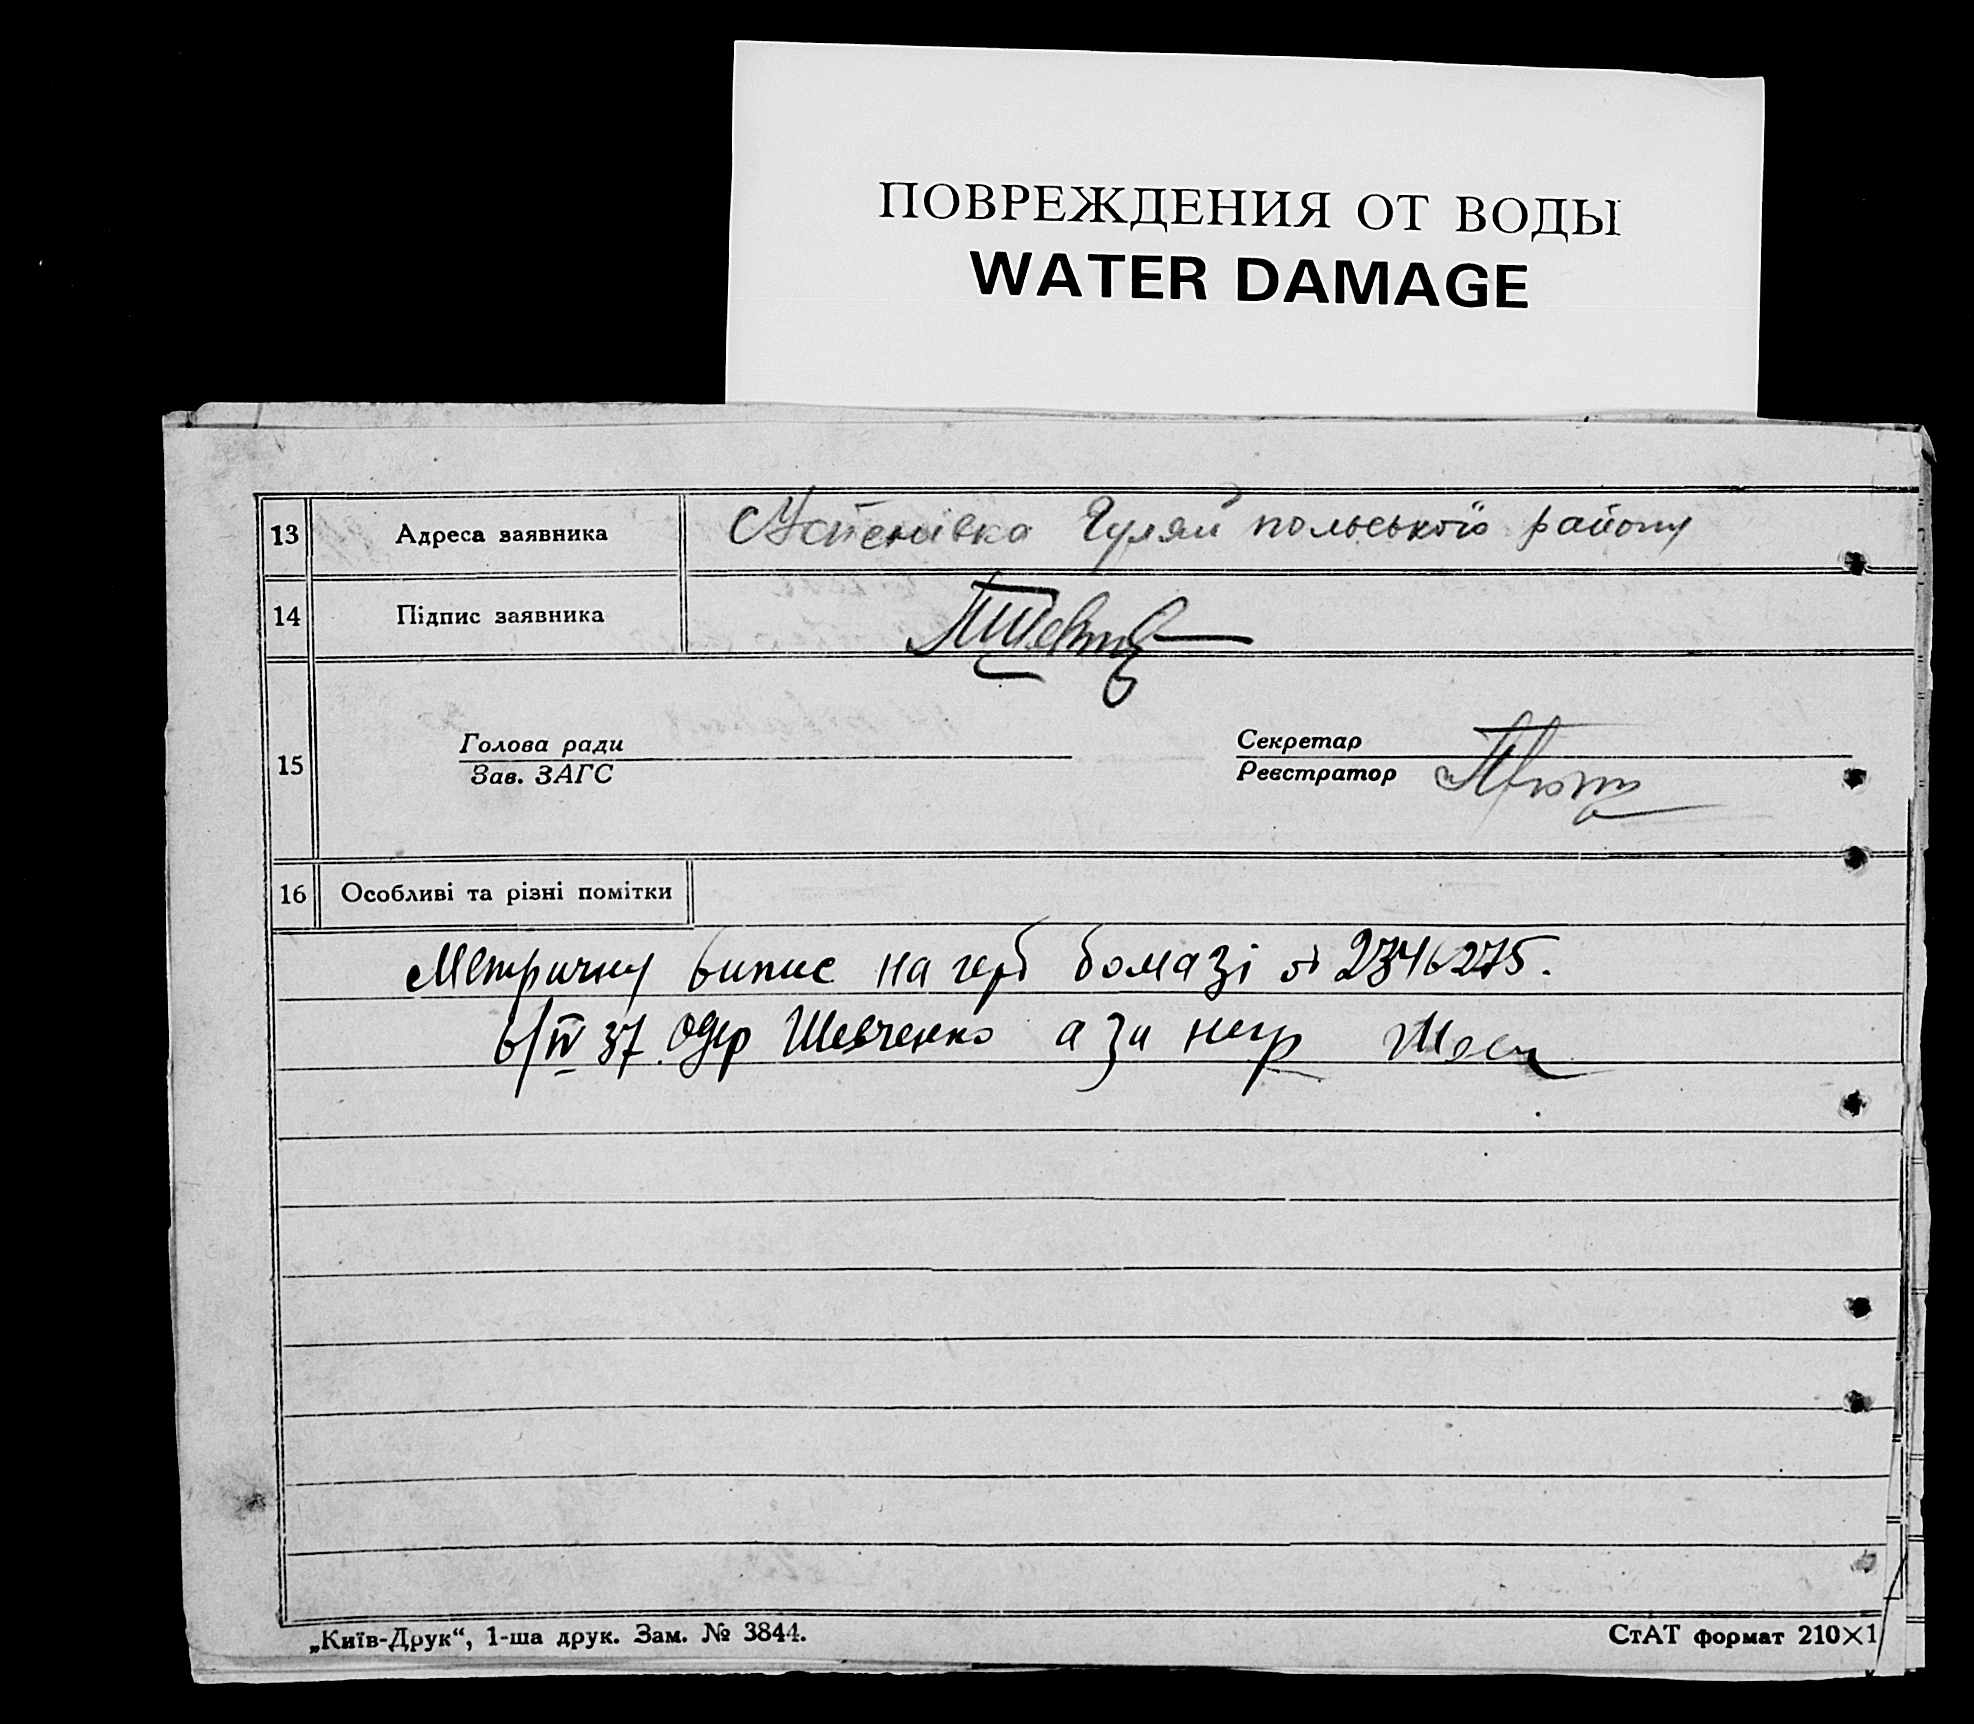 ПОВРЕЖДЕНИЯ ОТ ВОДЫ
WATER DAMAGE
13 Адреса заявника Успенівка Гуляй польського району
14 Підпис заявника
Голова ради Секретар
15
Зав. ЗАГС Реєстратор
16 Особливі та різні помітки
Метричну випис на герб бомазі
6/IV 37. одер Шевченко а за
„Київ-Друк“, 1-ша друк. Зам. № 3844. СтАТ формат 210×1